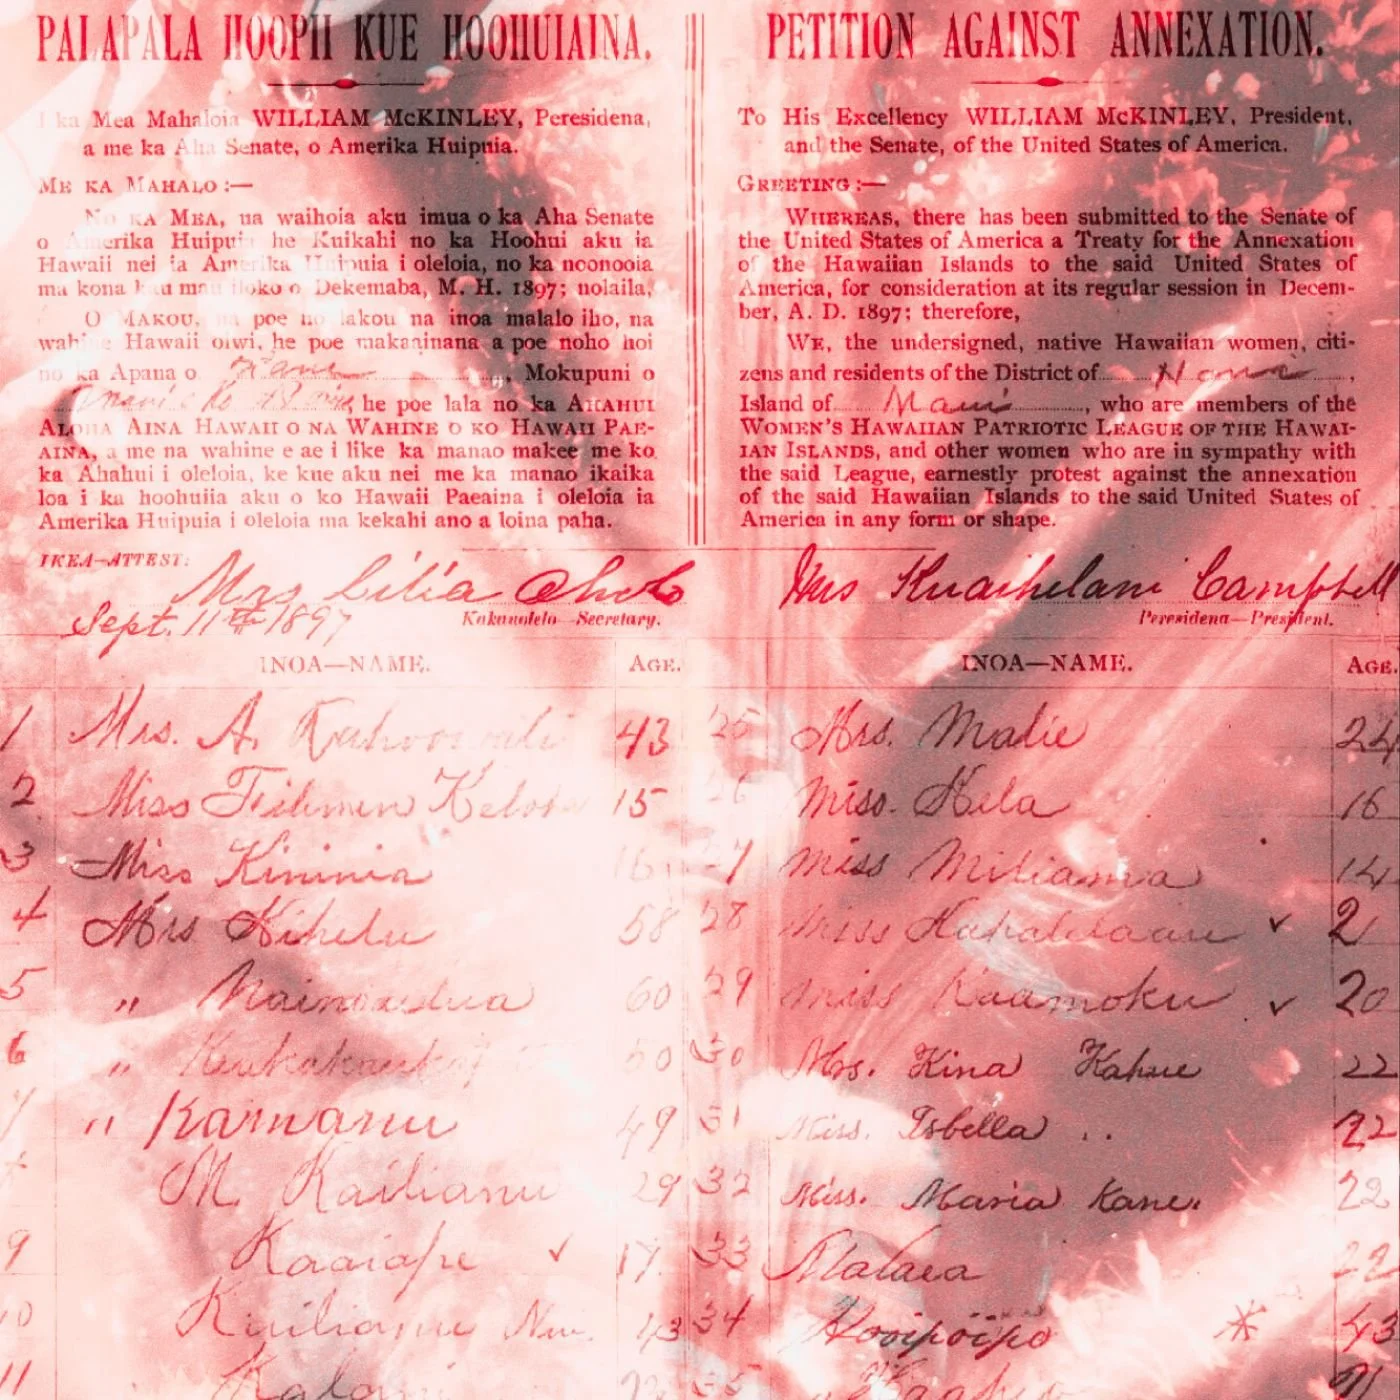 PALAPALA HOOPII KUE HOOHUIAINA.
I ka Mea Mahaloia WILLIAM McKINLEY, Peresidena,
a me ka Aha Senate, o Amerika Huipuia.
ME KA MAHALO :—
NO KA MEA, ua waihoia aku imua o ka Aha Senate
o Amerika Huipuia he Kuikahi no ka Hoohui aku ia
Hawaii nei ia Amerika Huipuia i oleloia, no ka noonooia
ma kona kau mau iloko o Dekemaba, M. H. 1897; nolaila,
O MAKOU, na poe no lakou na inoa malalo iho, na
wahine Hawaii oiwi, he poe makaainana a poe noho hoi
no ka Apana o Hana, Mokupuni o
Maui, he poe lala no ka AHAHUI
ALOHA AINA HAWAII O NA WAHINE O KO HAWAII PAE-
AINA, a me na wahine e ae i like ka manao makee me ko
ka Ahahui i oleloia, ke kue aku nei me ka manao ikaika
loa i ka hoohuiia aku o ko Hawaii Paeaina i oleloia ia
Amerika Huipuia i oleloia ma kekahi ano a loina paha.
PETITION AGAINST ANNEXATION.
To His Excellency WILLIAM McKINLEY, President,
and the Senate, of the United States of America.
GREETING :—
WHEREAS, there has been submitted to the Senate of
the United States of America a Treaty for the Annexation
of the Hawaiian Islands to the said United States of
America, for consideration at its regular session in Decem-
ber, A. D. 1897; therefore,
WE, the undersigned, native Hawaiian women, citi-
zens and residents of the District of Hana,
Island of Maui, who are members of the
WOMEN'S HAWAIIAN PATRIOTIC LEAGUE OF THE HAWAI-
IAN ISLANDS, and other women who are in sympathy with
the said League, earnestly protest against the annexation
of the said Hawaiian Islands to the said United States of
America in any form or shape.
IKEA—ATTEST:
Mrs Lilia Aholo
Sept. 11th 1897
Kakauolelo—Secretary.
Mrs Kuaihelani Campbell
Peresidena—President.
INOA—NAME. AGE.
1 Mrs. A. 43
2 Miss 15
3 Miss Kininia 16
4 Mrs Kihelu 58
5 " 60
6 " 50
7 " Kamanu 49
M. Kailianu 29
9 Kaaiape ✓ 17
10 Kailianu 43
11 Kalani
INOA—NAME. AGE.
25 Mrs. Malie 24
26 Miss. Hela 16
27 Miss Miliama 14
28 Miss ✓ 21
29 Miss Kaamoku ✓ 20
30 Mrs. Kina Kahue 22
31 Miss. Isbella .. 22
32 Miss. Maria Kane. 22
33 Malaea 22
34 Hooipoipo * 43
35